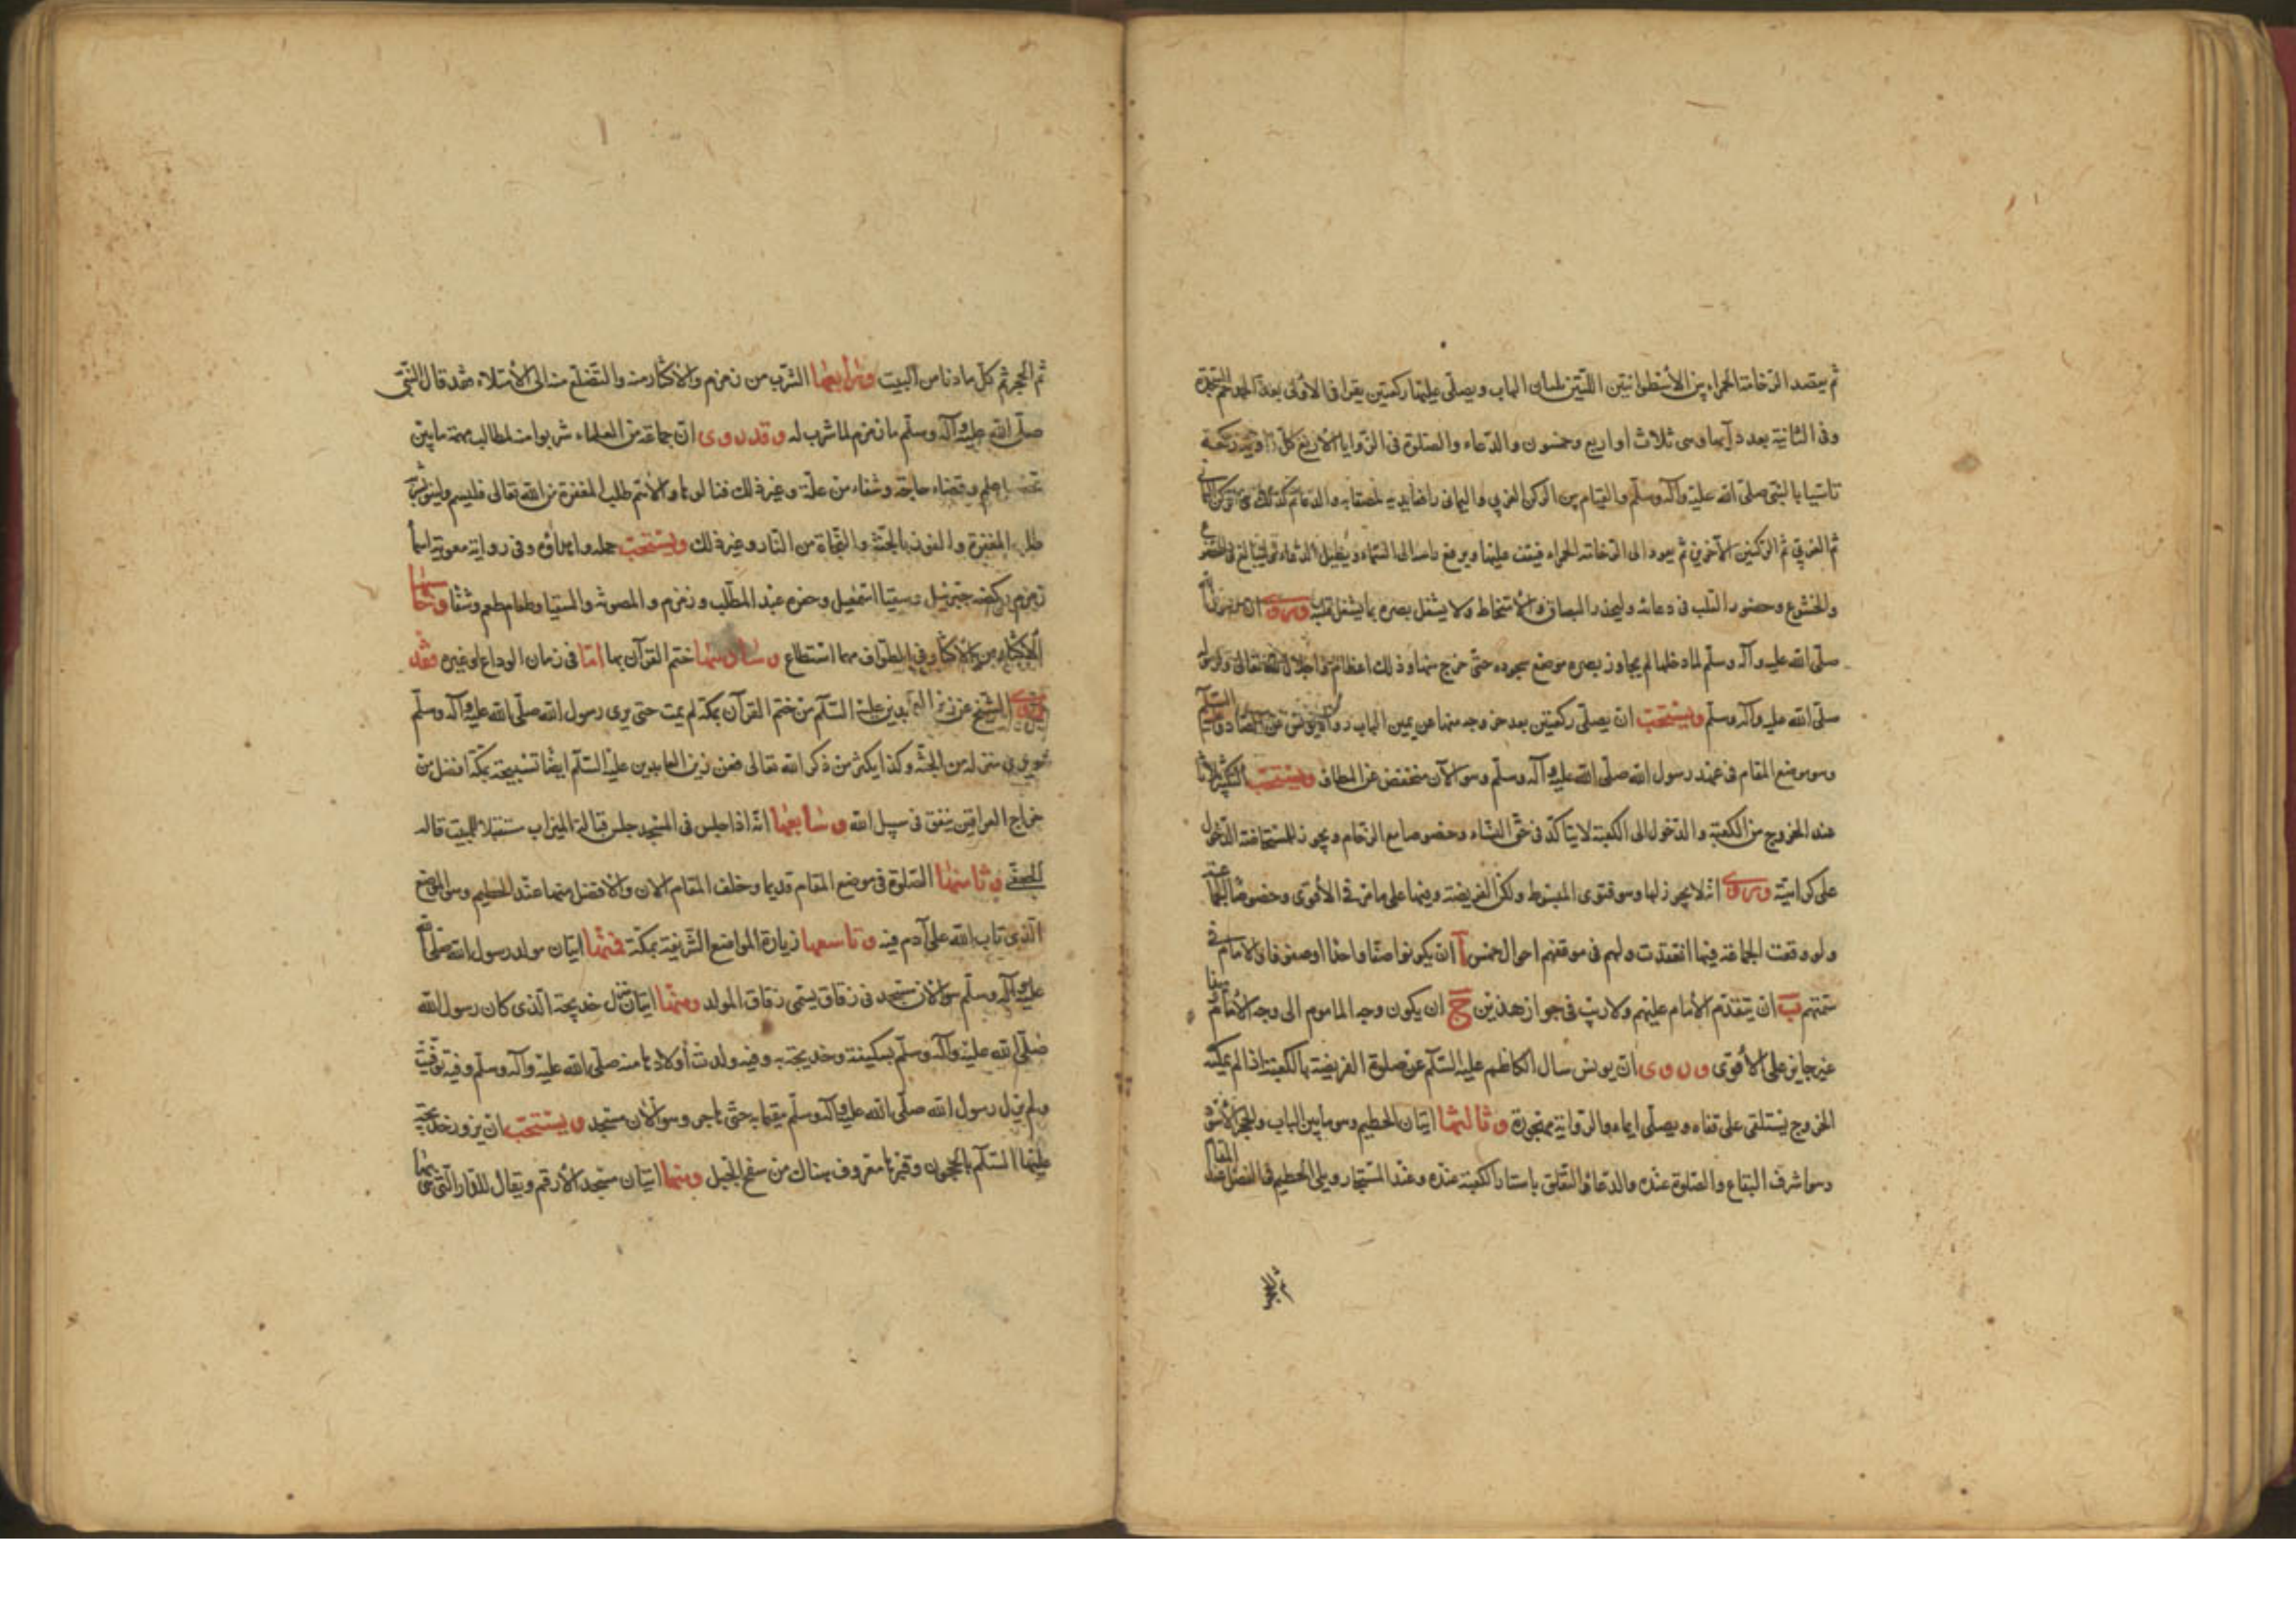 ثم يقصد الرخامة الحمراء بين الأسطوانتين اللتين تليان الباب ويصلى عليها ركعتين يقرا فى الاولى بعد الحمد حم السجدة
وفى الثانية بعدد آيها وهى ثلاث او اربع وخمسون والدعاء والصلوة فى الزوايا الأربع كل زاوية ركعة
تاسيا بالنبى صلى الله عليه وآله وسلم والقيام بين الركن الغربى واليمانى رافعا يديه ملصقا به والدعاء ثم كذلك فى الركن اليمانى
ثم الغربى ثم الركنين الآخرين ثم يعود الى الرخامة الحمراء فيقف عليها ويرفع راسه الى السماء ويطيل الدعاء وليبالغ فى الخضوع
والخشوع وحضور القلب فى دعائه وليحذر البصاق والامتخاط ولا يشغل بصره بما يشغل قلبه وروى ان رسول الله
صلى الله عليه وآله وسلم لما دخلها لم يجاوز بصره موضع سجوده حتى خرج منها وذلك اعظاما واجلالا لله تعالى ولرسوله
صلى الله عليه وآله وسلم ويستحب ان يصلى ركعتين بعد خروجه منها عن يمين الباب رواه يونس عن الصادق عليه السلام
وهو موضع المقام فى عهد رسول الله صلى الله عليه وآله وسلم وهو الآن منخفض عن المطاف ويستحب التكبير ثلاثا
عند الخروج من الكعبة والدخول الى الكعبة لا يتاكد فى حق النساء وخصوصا مع الزحام ويجوز للمستحاضة الدخول
على كراهية وروى انه لا يجوز لها وهو فتوى المبسوط ولكن الفريضة وفيها على ما مر فى الأقوى وخصوصا الجماعة
ولو وقعت الجماعة فيها انعقدت ولهم فى موقفهم احوال خمس آ ان يكونوا صفا واحدا او صفوفا والامام فى
سمتهم ب ان يتقدم الأمام عليهم ولا ريب فى جواز هذين ج ان يكون وجه الماموم الى وجه الأمام وهنا
غير جايز على الأقوى وروى ان يونس سال الكاظم عليه السلام عن صلوة الفريضة بالكعبة اذا لم يمكنه
الخروج يستلقى على قفاه ويصلى ايماء والرواية مهجورة وثالثها ايتان الحطيم وهو ما بين الباب والحجر الأسود
وهو اشرف البقاع والصلوة عنده والدعاء والتعلق باستار الكعبة عنده وعند المستجار ويلى الحطيم فى الفضل عند المقام
ثم الحجر
ثم الحجر ثم كل ما دنا من البيت ورابعها الشرب من زمزم والاكثار منه والتضلع منه الى الامتلاء فقد قال النبى
صلى الله عليه وآله وسلم ماء زمزم لما شرب له وقد روى ان جماعة من العلماء شربوا منه لمطالب مهمة ما بين
علم وقضاء حاجة وشفاء من علة وغير ذلك فنالوها والأهم طلب المغفرة من الله تعالى فليسم ولينو بشربه
طلب المغفرة والفوز بالجنة والنجاة من النار وغير ذلك ويستحب حمله واهداؤه وفى رواية معوية اسما
زمزم ركضة جبرئيل وسقيا اسمعيل وحفرة عبد المطلب وزمزم والمصونة والسقيا وطعام طعم وشفا وخامسها
الاكثار من الطواف مهما استطاع وسادسها ختم القرآن بها اما فى زمان الوداع او غيره فقد
روى الشيخ عن زين العابدين عليه السلام من ختم القرآن بمكة لم يمت حتى يرى رسول الله صلى الله عليه وآله وسلم
ويرى منزله من الجنة وكذا يكثر من ذكر الله تعالى فعن زين العابدين عليه السلام ايضا تسبيحة بمكة افضل من
خراج العراقين ينفق فى سبيل الله وسابعها انه اذا جلس فى المسجد جلس قبالة الميزاب مستقبلا للبيت قاله
الجعفى وثامنها الصلوة فى موضع المقام قديما وخلف المقام الآن والأفضل منهما عند الحطيم وهو الموضع
الذى تاب الله على آدم فيه وتاسعها زيارة المواضع الشريفة بمكة فمنها ايتان مولد رسول الله صلى الله
عليه وآله وسلم وهو الآن مسجد فى زقاق يسمى زقاق المولد ومنها ايتان منزل خديجة الذى كان رسول الله
صلى الله عليه وآله وسلم يسكنه وخديجة به وفيه ولدت أولادها منه صلى الله عليه وآله وسلم وفيه توفيت
ولم يزل رسول الله صلى الله عليه وآله وسلم مقيما به حتى هاجر وهو الآن مسجد ويستحب ان يزور خديجة
عليها السلام بالحجون وقبرها معروف هناك من سفح الجبل ومنها ايتان مسجد الأرقم ويقال للدار التى هو بها